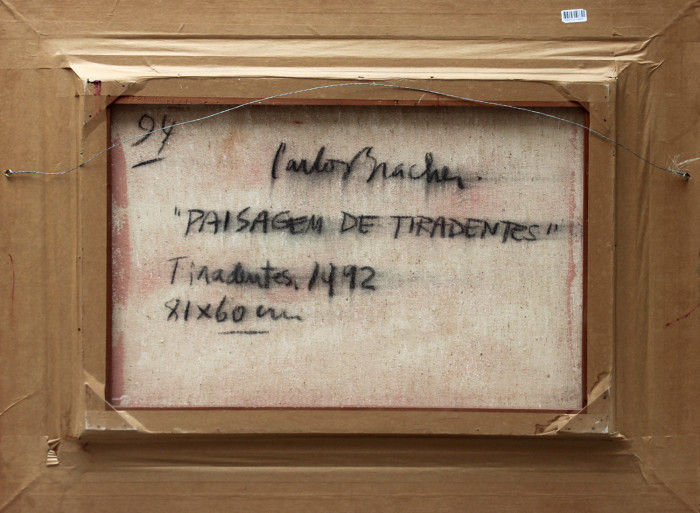 94
Carlos Bracher.
"PAISAGEM DE TIRADENTES"
Tiradentes, 1992
81x60 cm